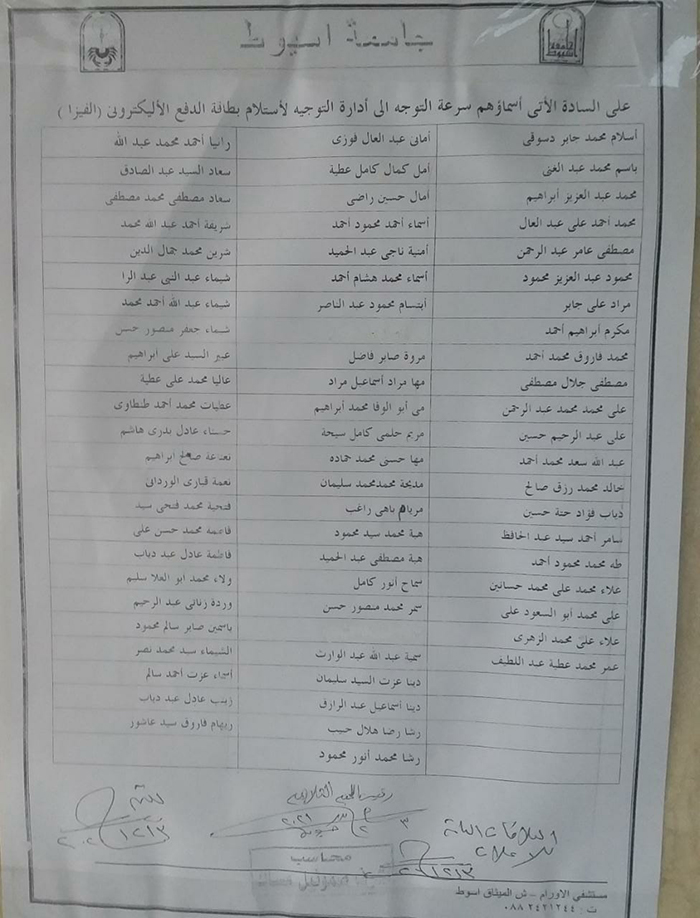 جامعة اسيوط
على السادة الأتى أسماؤهم سرعة التوجه الى أدارة التوجيه لأستلام بطاقة الدفع الأليكترونى (الفيزا)
أسلام محمد جابر دسوقى
أمانى عبد العال فوزى
رانيا أحمد محمد عبد الله
باسم محمد عبد الغنى
أمل كمال كامل عطية
سعاد السيد عبد الصادق
محمد عبد العزيز أبراهيم
أمال حسين راضى
سعاد مصطفى محمد مصطفى
محمد أحمد على عبد العال
أسماء أحمد محمود أحمد
شريفة أحمد عبد الله محمد
مصطفى عامر عبد الرحمن
أمنية ناجى عبد الحميد
شرين محمد جمال الدين
محمود عبد العزيز محمود
أسماء محمد هشام أحمد
شيماء عبد النبى عبد الرا
مراد على جابر
أبتسام محمود عبد الناصر
شيماء عبد الله أحمد محمد
مكرم أبراهيم أحمد
شماء جعفر منصور حسن
محمد فاروق محمد أحمد
مروة صابر فاضل
عبير السيد على أبراهيم
مصطفى جلال مصطفى
مها مراد أسماعيل مراد
عاليا محمد على عطية
على محمد محمد عبد الرحمن
مى أبو الوفا محمد أبراهيم
عطيات محمد أحمد طنطاوى
على عبد الرحيم حسين
مريم حلمى كامل سيحة
حسناء عادل بدرى هاشم
عبد الله سعد محمد أحمد
مها حسنى محمد حماده
نعناعة صالح ابراهيم
خالد محمد رزق صالح
مديحة محمدمحمد سليمان
نعمة قبارى الوردانى
دياب فؤاد حتة حسين
مريام باهى راغب
فتحية محمد فتحى سيد
سامر أحمد سيد عبد الحافظ
هبة محمد سيد محمود
فاطمه محمد حسن على
طه محمد محمود أحمد
هبة مصطفى عبد الحميد
فاطمة عادل عبد دياب
علاء محمد على محمد حسانين
سماح أنور كامل
ولاء محمد ابو العلا سليم
على محمد أبو السعود على
سمر محمد منصور حسن
وردة زناتى عبد الرحيم
علاء على محمد الزهرى
ياسمين صابر سالم محمود
عمر محمد عطية عبد اللطيف
سمية عبد الله عبد الوارث
الشيماء سيد محمد نصر
دينا عزت السيد سليمان
أسماء عزت أحمد سالم
دينا أسماعيل عبد الرازق
زينب عادل عبد دياب
رشا رضا هلال حبيب
ريهام فاروق سيد عاشور
رشا محمد أنور محمود
محاسب
مستشفى الاورام - ش الميثاق اسوط
ت : ٠٨٨ ٢٤٢١٢٤٤